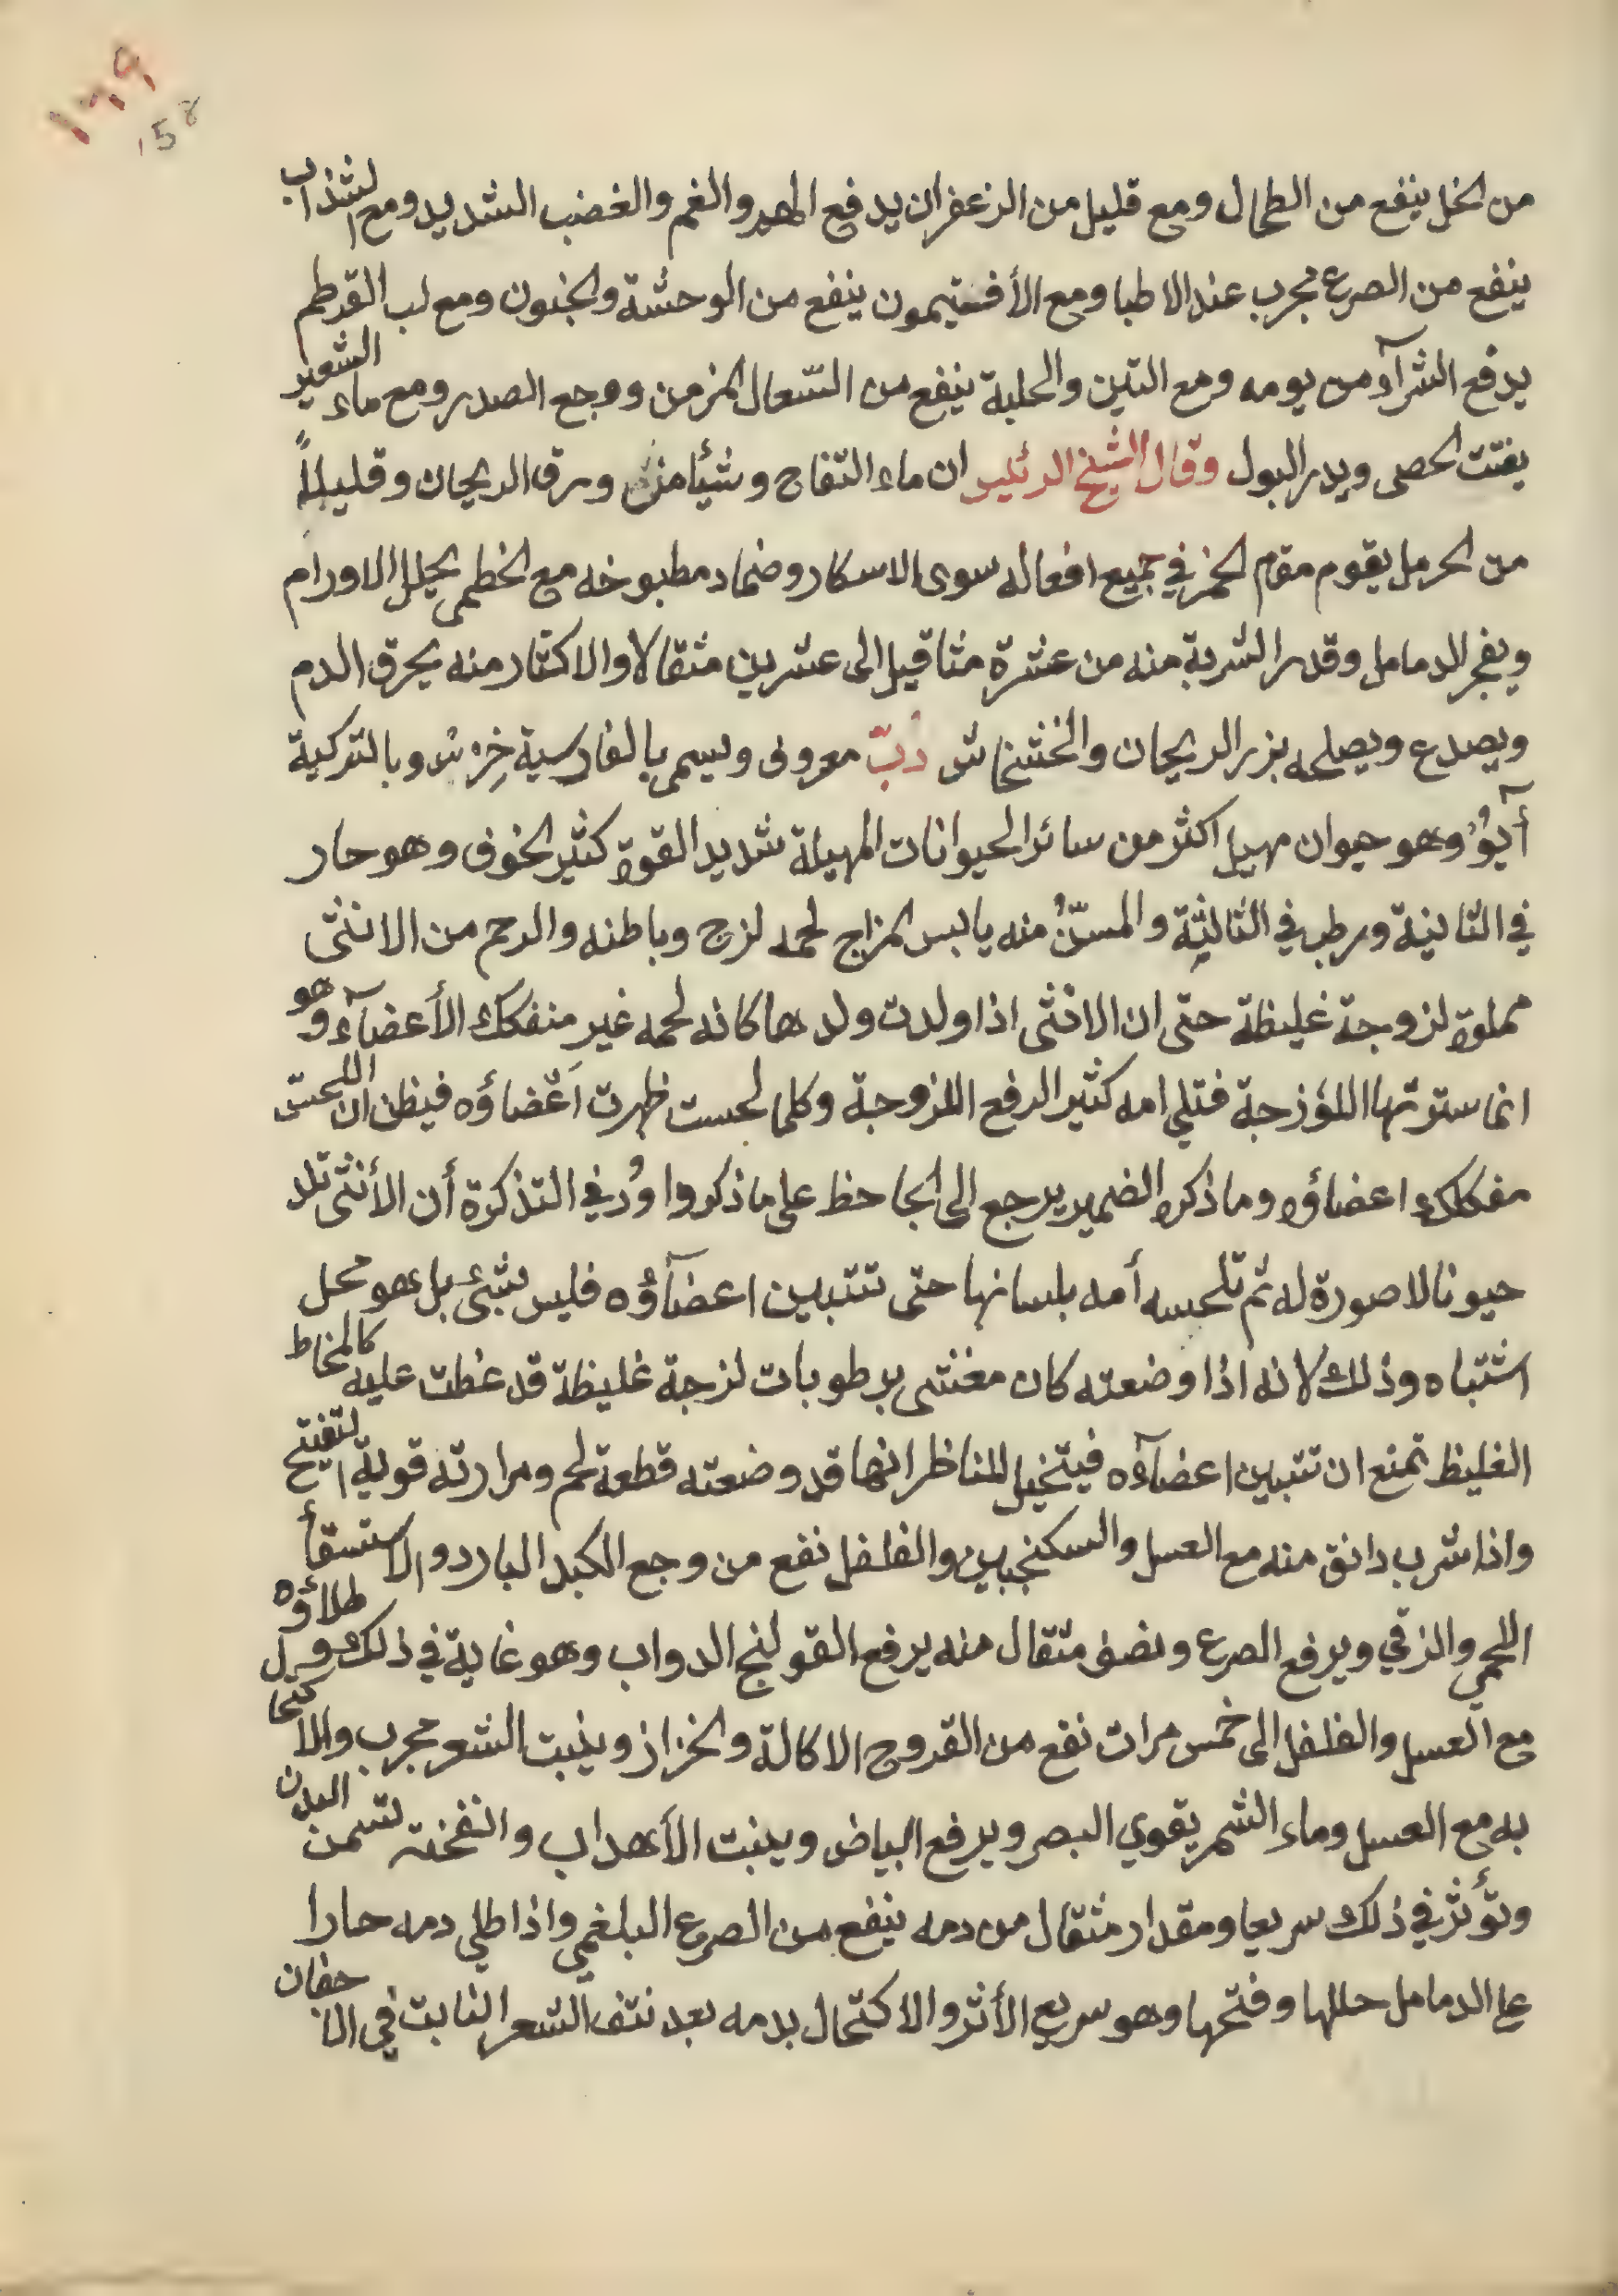 ١٦٩
158
من الخل ينفع من الطحال ومع قليل من الزعفران يدفع الهم والغم والغضب الشديد ومع الشذاب
ينفع من الصرع مجرب عند الاطبا ومع الأفستيمون ينفع من الوحشة والجنون ومع لب القرطم
يدفع الشرآء من يومه ومع التين والحلبة ينفع من السّعال المزمن ووجع الصدر ومع ماء الشعير
يفتت الحصى ويدر البول وقال الشيخ الرئيس ان ماء التفاح وشيًا من ورق الريحان وقليلاً
من الحرمل يقوم مقام الخمر في جميع افعاله سوى الاسكار وضماد مطبوخه مع الخطمى يحلل الاورام
ويفجر الدمامل وقدر الشربة منه من عشرة مثاقيل الى عشرين مثقالا والاكثار منه يحرق الدم
ويصدع ويصلحه بزر الريحان والخشخاش دُبّ معروف ويسمى بالفارسية خِرْس وبالتركية
آيوُ وهو حيوان مهيل اكثر من سائر الحيوانات المهيلة شديد القوة كثير الخوف وهو حار
في الثانية ورطب في الثالثة والمسنّ منه يابس المزاج لحمه لزج وباطنه والرحم من الانثى
مملوة لزوجة غليظة حتى ان الانثى اذا ولدت ولدها كانه لحمه غير منفكك الأعضآء وهو
انما سترتها اللؤزجة فتلي امه كثير الرفع اللزوجة وكلما لحست ظهرت اَعْضاؤه فيظن ان اللحس
مفكك اعضاؤه وما ذكره الضمير يرجع الى الجاحظ على ما ذكروا وُرد في التذكرة أن الأنثى تلد
حيونا لا صورة له ثم تلحسه أمه بلسانها حتى تتبين اعضآؤه فليس بشئ بل هو محل
اشتباه وذلك لانه اذا وضعته كان مغشى برطوبات لزجة غليظة قد غطت عليه كالمخاط
الغليظ تمنع ان تتبين اعضآءه فيتخيل للناظر انها قد وضعته قطعة لحم ومرارته قوية التفتيح
واذا شرب دانق منه مع العسل والسكنجبين والفلفل نفع من وجع الكبد البارد والاستسقأ
اللحمي والزقي ويرفع الصرع ونصف مثقال منه يرفع القولنج الدواب وهو غاية في ذلك وطلاؤه
مع العسل والفلفل الى خمس مرات نفع من القروح الاكالة والحزاز وينبت الشعر مجرب والاكتحال
به مع العسل وماء الشمر يقوي البصر ويرفع البياض وينبت الأهداب وانفحته تسمن البدن
وتؤثر في ذلك سريعا ومقدار مثقال من دمه ينفع من الصرع البلغمي واذا طلي دمه حارا
على الدمامل حللها وفتحها وهو سريع الأثر والاكتحال بدمه بعد نتف الشعر النابت في الاجفان